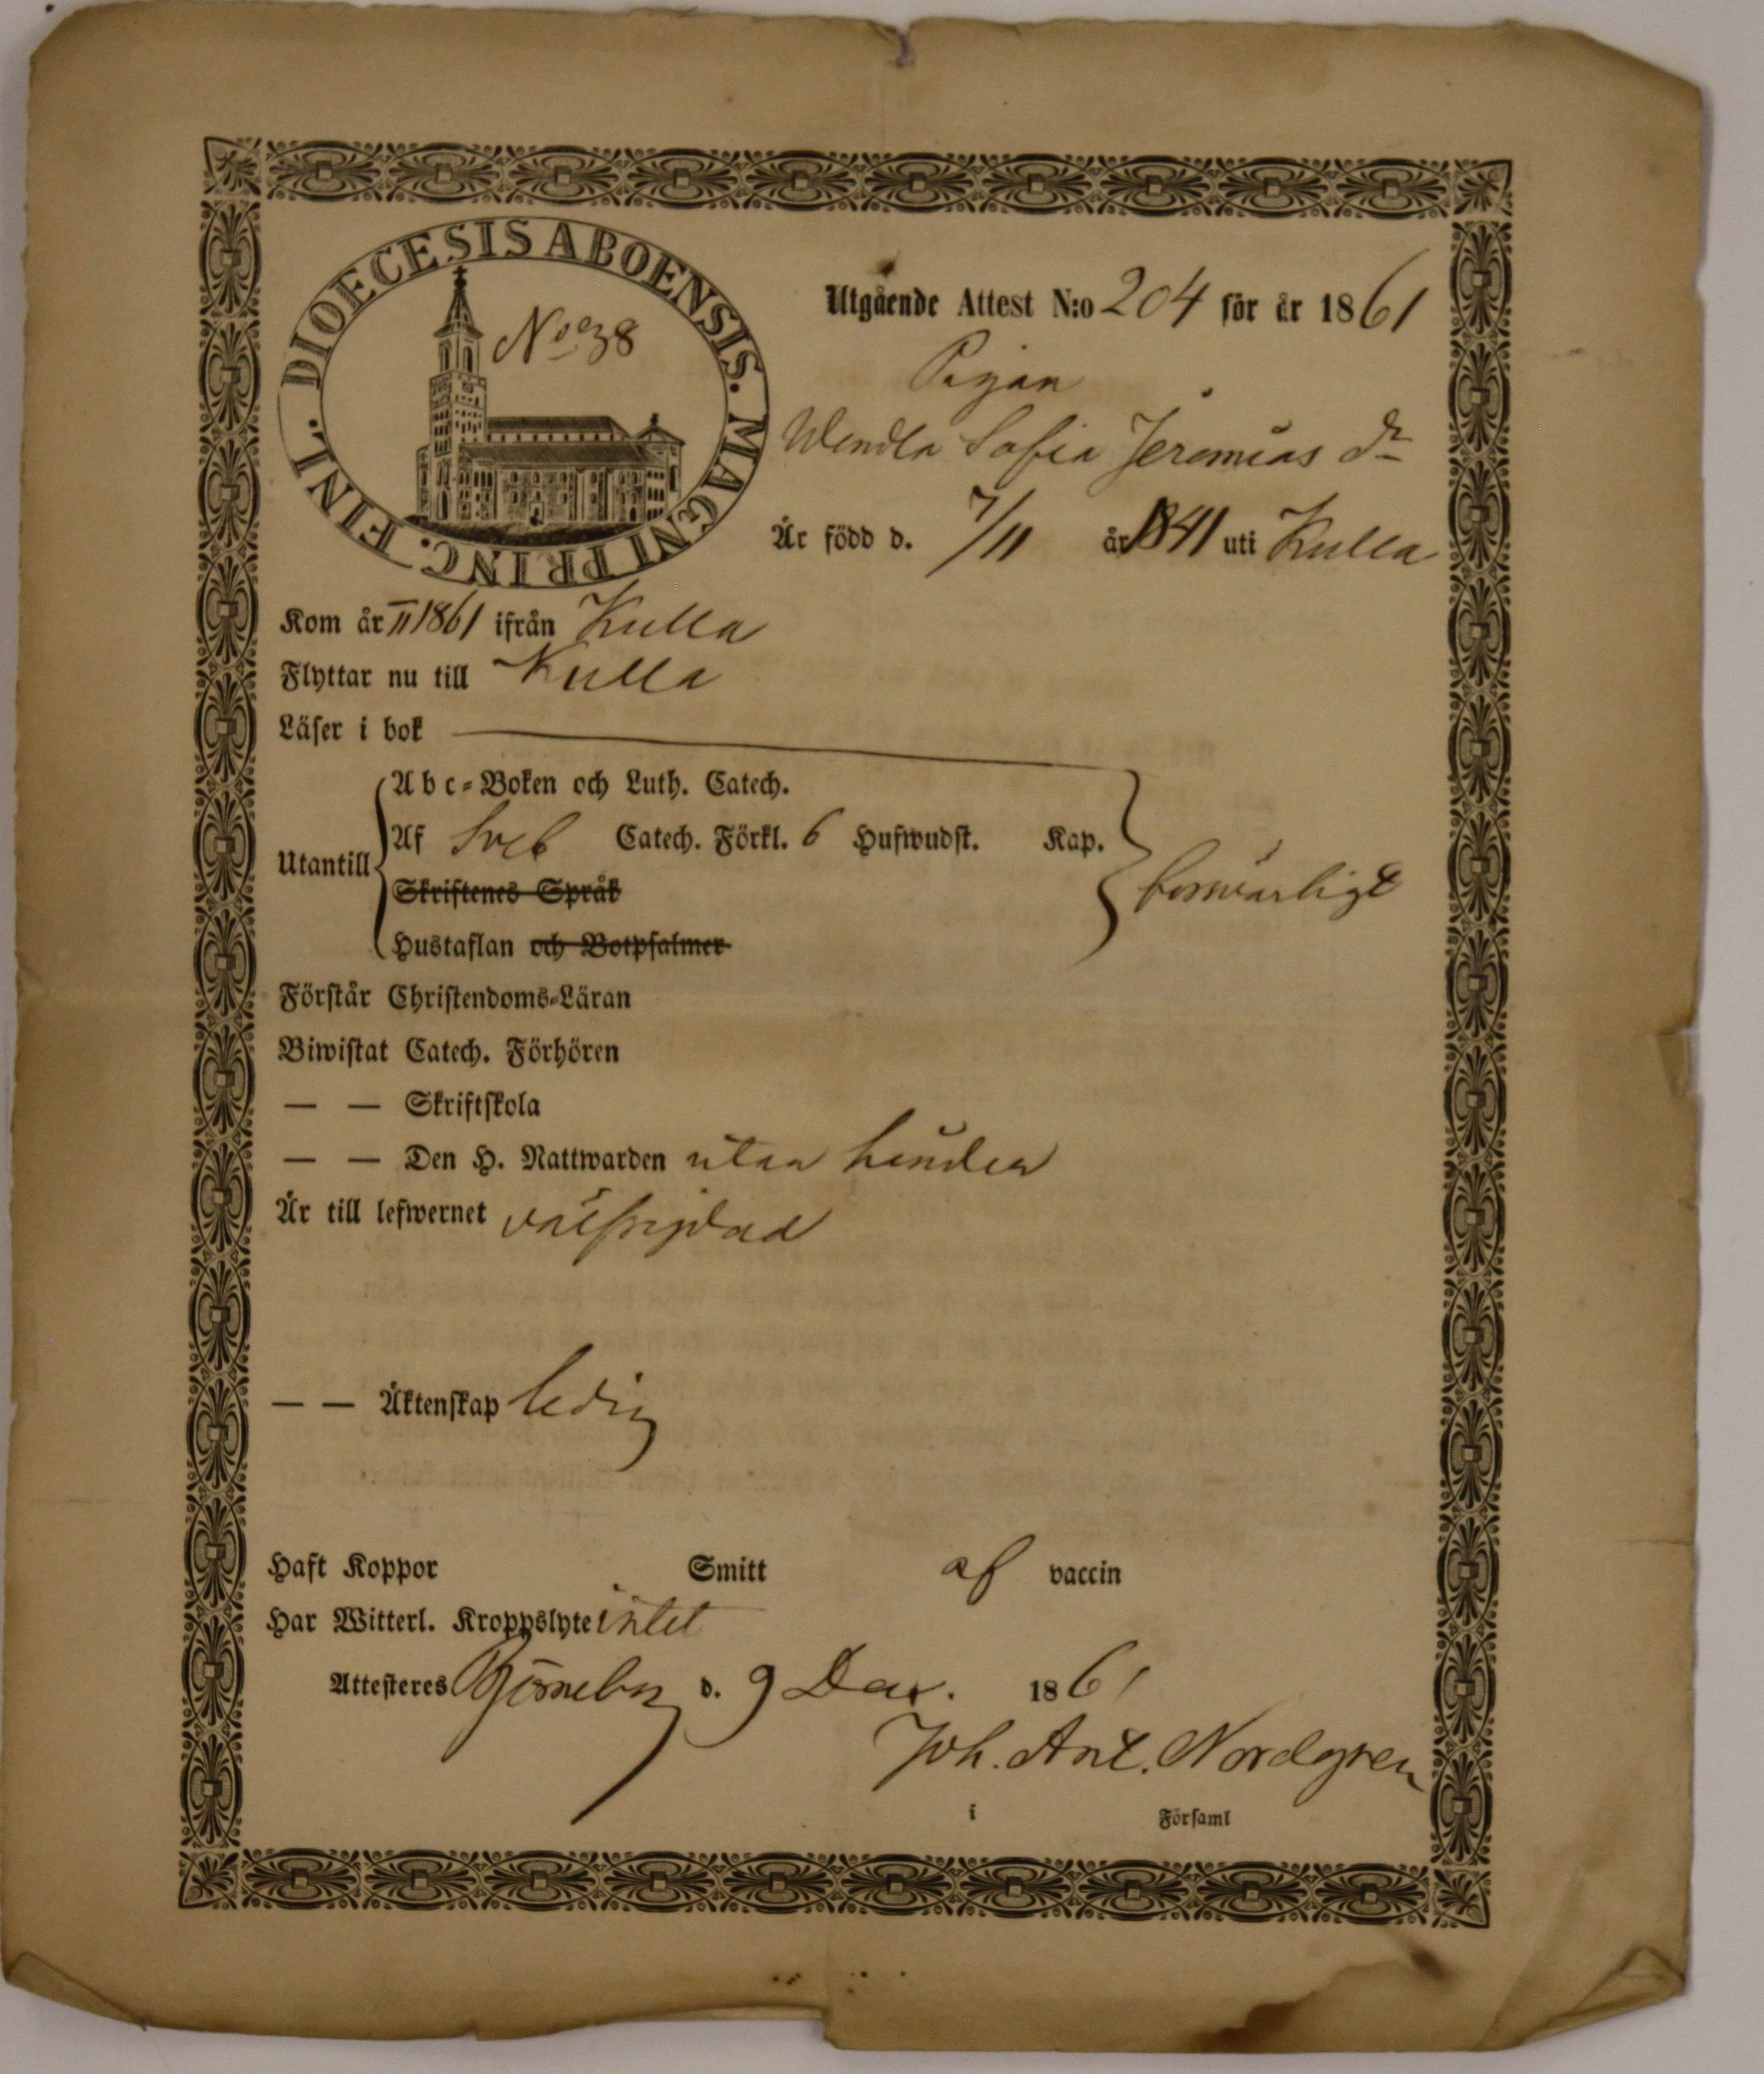 DIOECESIS ABOENSIS. MAGNI PRINC. FINL.
No 38
Utgående Attest N:o 204 för år 1861
Pigan
Wendla Sofia Jeremias dr
Är född d. 7/11 år 1841 uti Kulla
Kom år II 1861 ifrån Kulla
Flyttar nu till Kulla
Läser i bok
Abc-Boken och Luth. Catech.
Utantill
Af Sveb Catech. Förkl. 6 Hufwudst. Kap.
Skriftenes Språk
försvarligt
Hustaflan och Botpsalmer
Förstår Christendoms-Läran
Biwistat Catech. Förhören
— — Skriftskola
— — Den H. Nattwarden utan hinder
Är till lefwernet välfrejdad
— — Äktenskap ledig
Haft Koppor Smitt af vaccin
Har Witterl. Kroppslyte intet
Attesteres Björneborg d. 9 Dec. 1861
Joh. Ant. Nordgren
i Församl